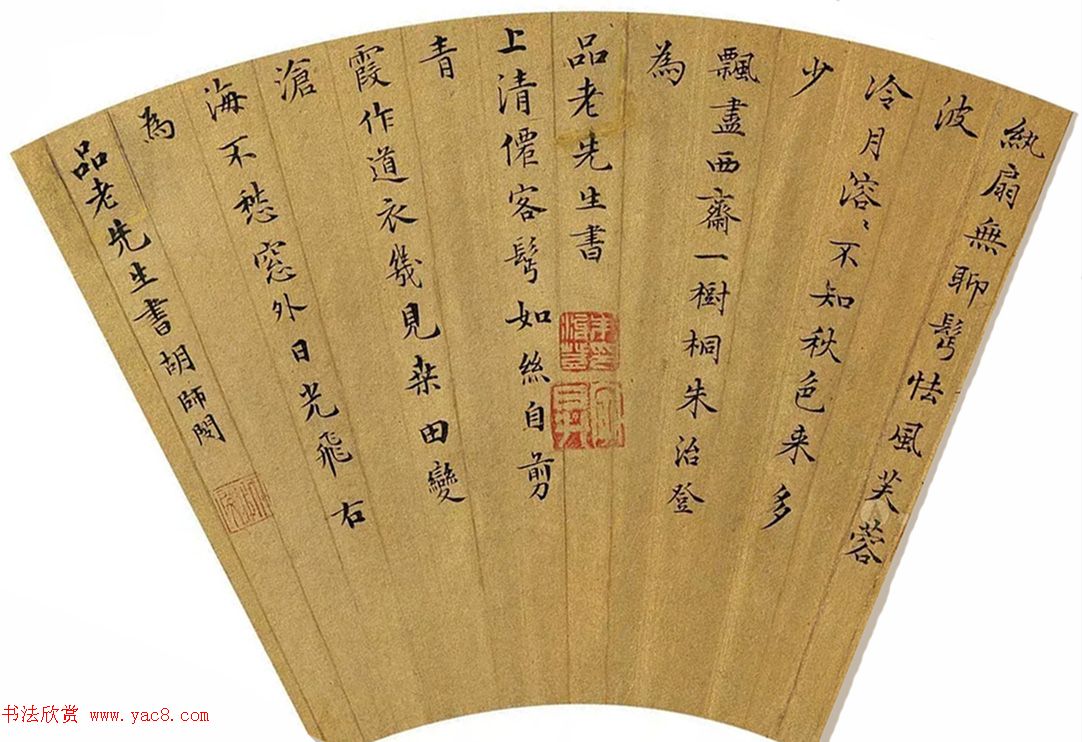 紈扇無聊鬓怯風芙蓉
波
冷月溶〻不知秋色来多
少
飄盡西齋一樹桐朱治登
為
品老先生書
上清僊客鬓如絲自剪
青
霞作道衣幾見桒田變
滄
海不愁窓外日光飛右
為
品老先生書胡師閔
书法欣赏 www.yac8.com